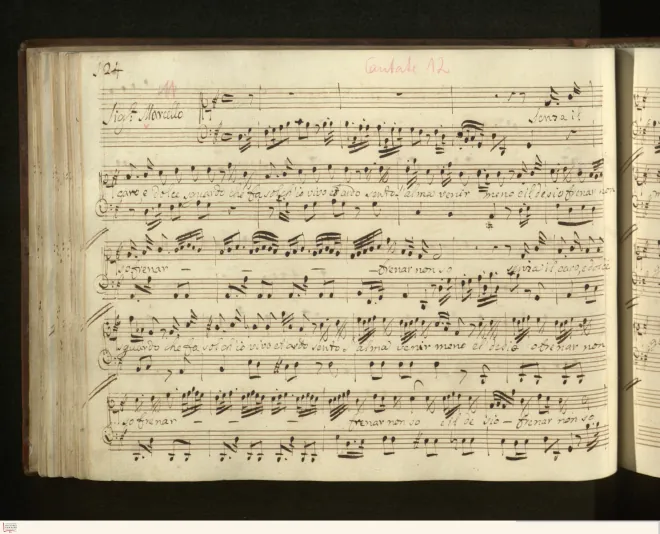 124
Cantate 12
Sig.r Marcello
Senza il
caro e dolce sguardo che fa sol ch'io vivo et ardo sento l'alma venir meno e il desio frenar non
so frenar — — — frenar non so senza il caro e dolce
sguardo che fa sol ch'io vivo et ardo sento l'alma venir meno e il desio frenar non
so frenar — — — frenar non so e il desio — frenar non so